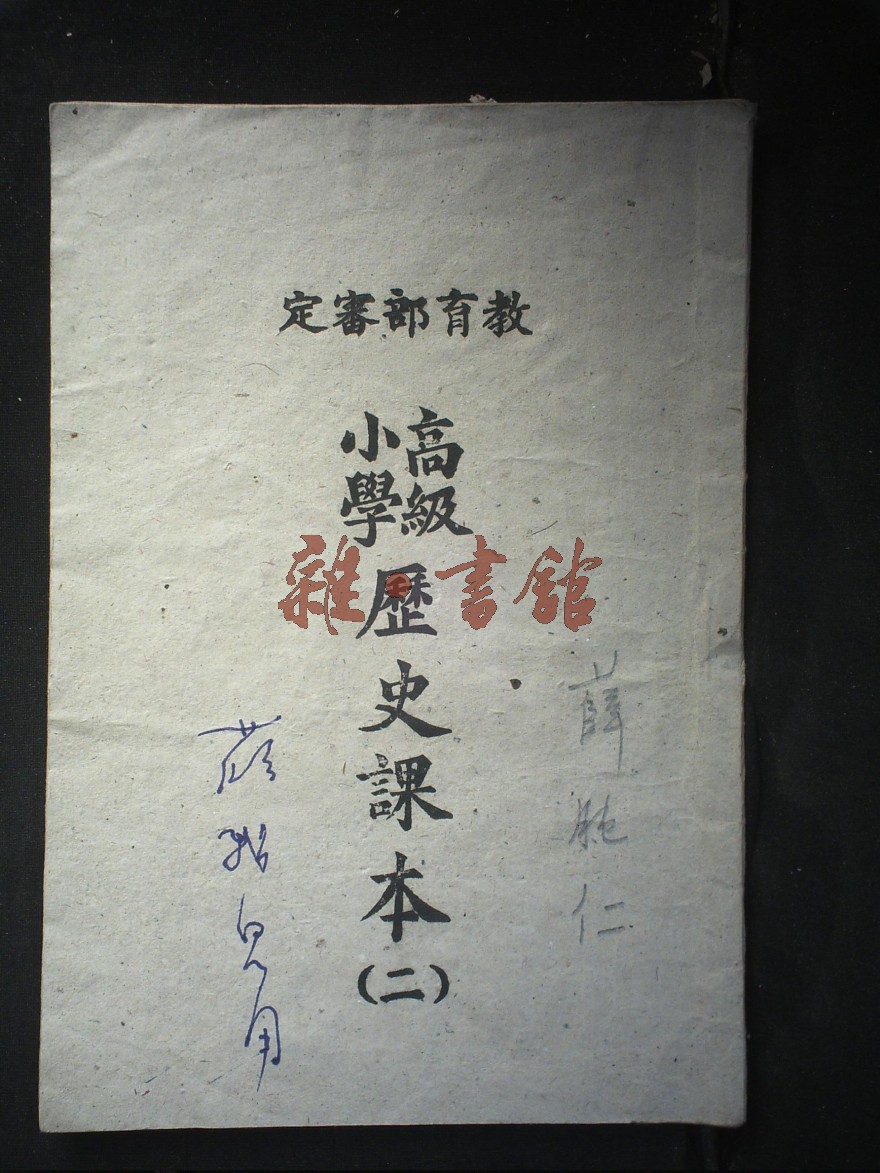 教育部審定
高級
小學
歷史課本
(二)
雜書館
薛
仁